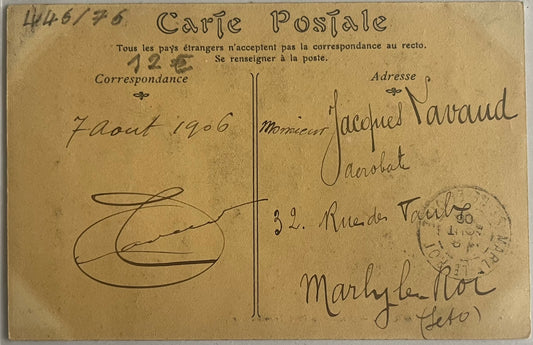 446/76
Carte Postale
Tous les pays étrangers n'acceptent pas la correspondance au recto.
Se renseigner à la poste.
12 €
Correspondance
Adresse
7 Aout 1906
Monsieur Jacques Lavaud
acrobate
32. Rue des
Marly le Roi
(Seto)